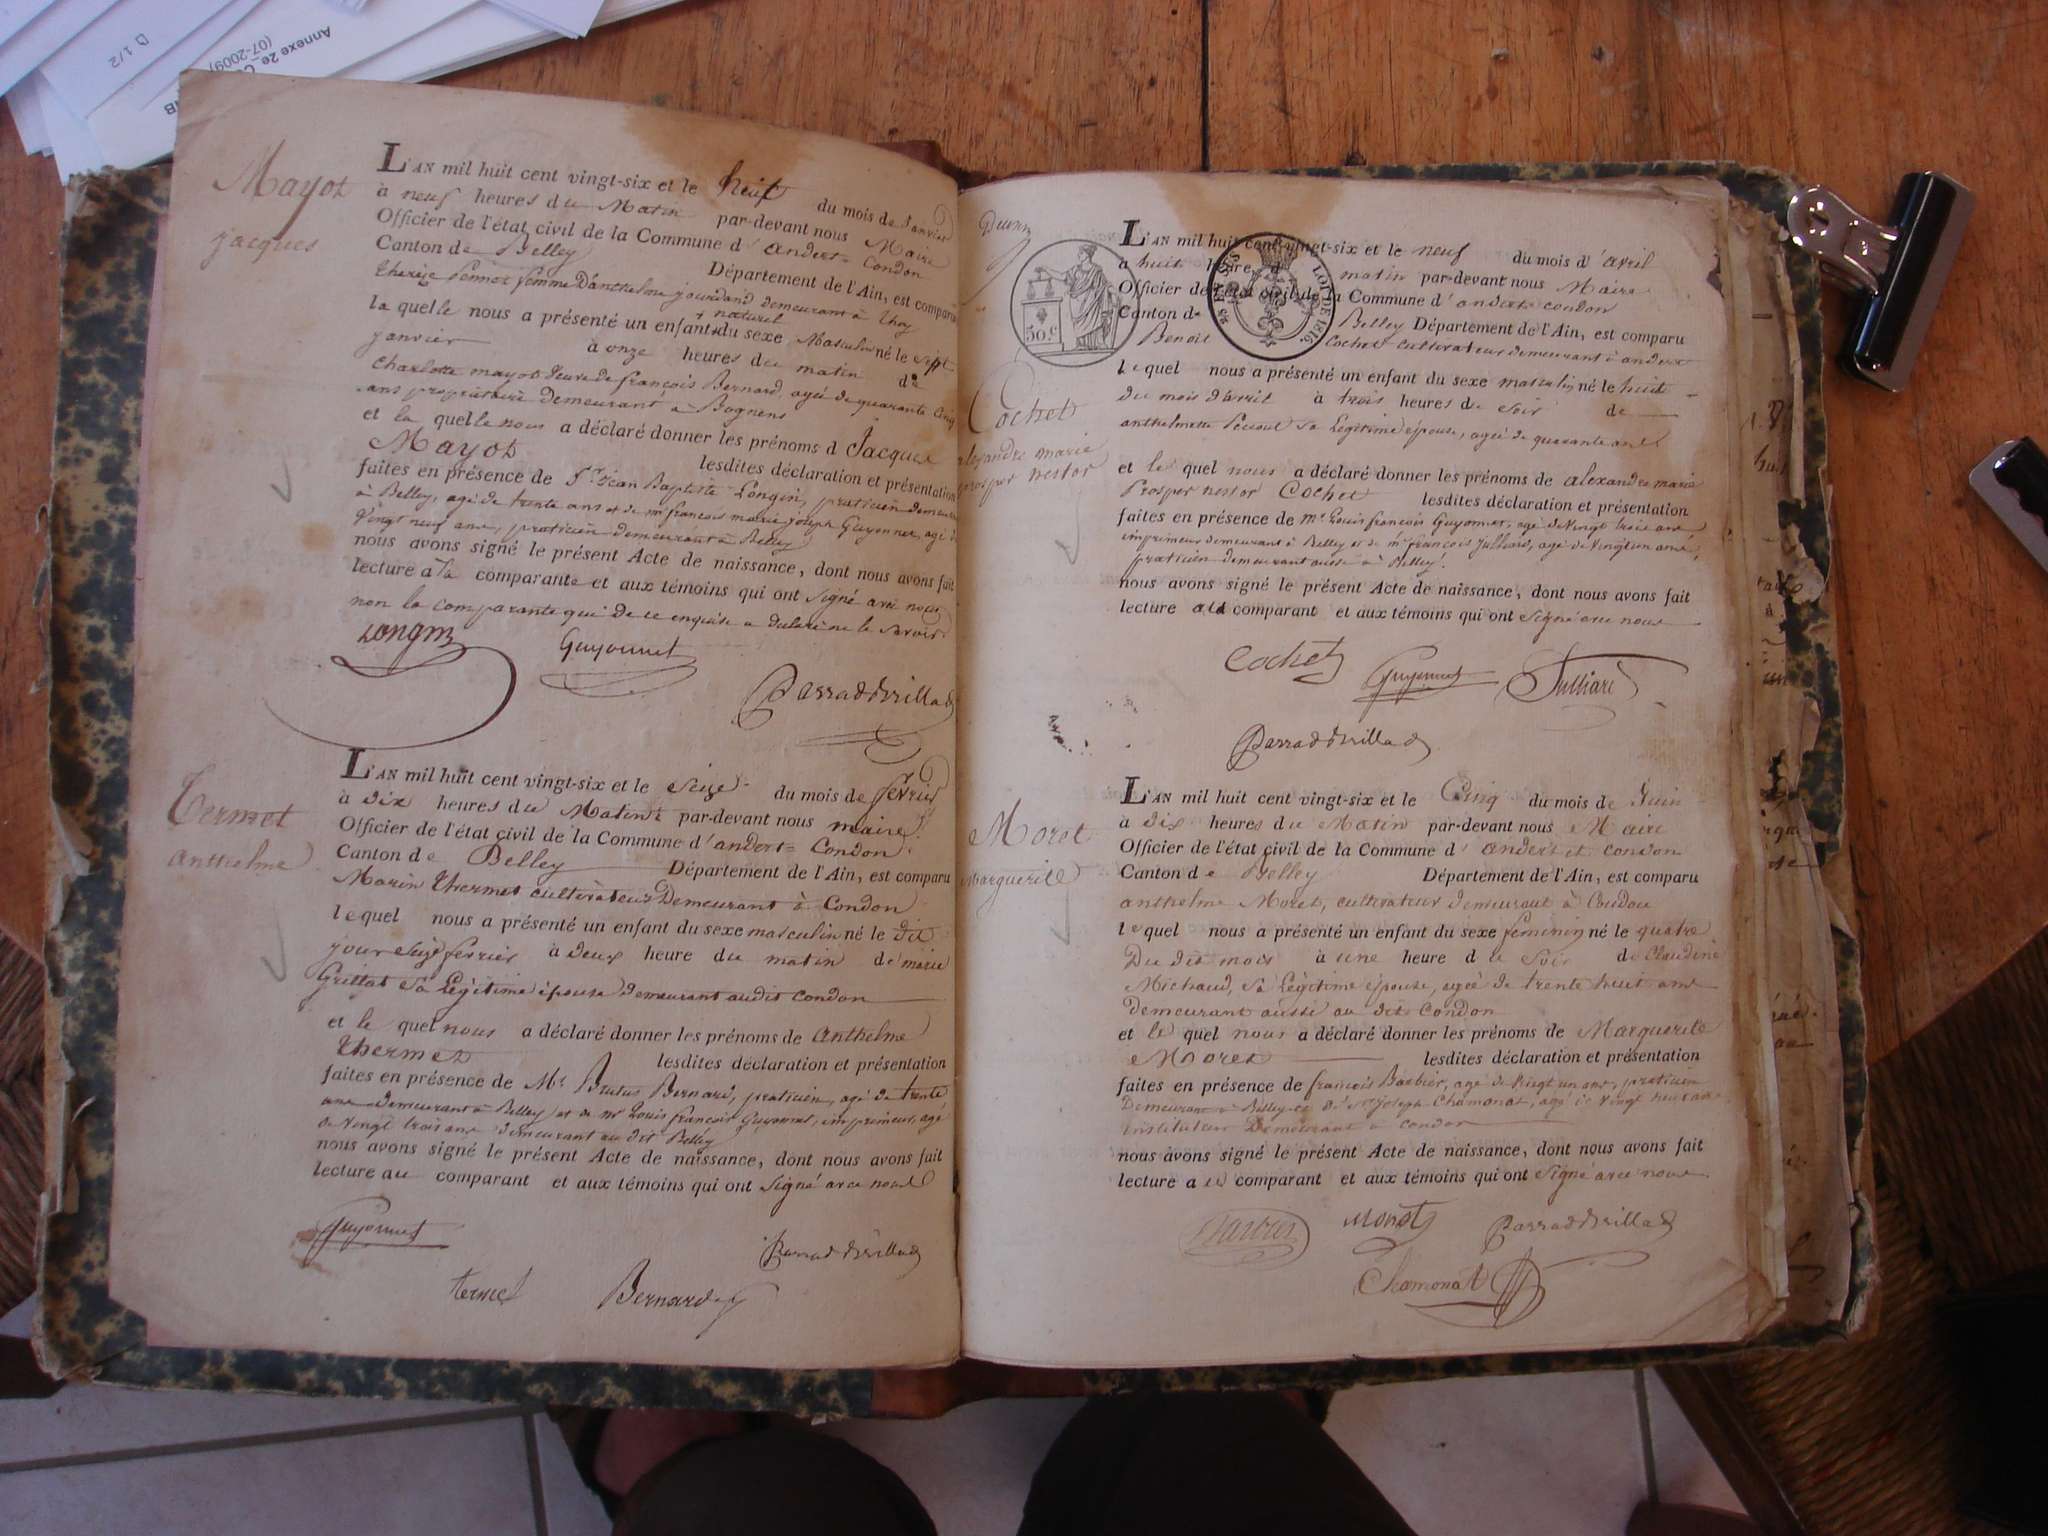 D 1/2
Annexe 2e
(07-2009)
Mayot
jacques
L'AN mil huit cent vingt-six et le huit du mois de Janvier
à neuf heures du Matin par-devant nous Maire
Officier de l'état civil de la Commune d' andert=Condon
Canton de Belley Département de l'Ain, est comparu
therèze femme D'anthelme jourdand demeurant à thoy
la quelle nous a présenté un enfant + du sexe Masculin né le sept
+ naturel
janvier à onze heures du matin de
Charlotte mayot Veuve de françois Bernard, agée de quarante Cinq
ans propriétaire demeurant a Bognens
et la quelle nous a déclaré donner les prénoms d Jacques
Mayot lesdites déclaration et présentation
faites en présence de Sr. Jean Baptiste Longin, praticien demeurant
à Belley, agé de trente ans et de mr françois marie joseph Guyonnet, agé de
Vingt neuf ans, praticien demeurant à Belley
nous avons signé le présent Acte de naissance, dont nous avons fait
lecture a la comparante et aux témoins qui ont signé avec nous
non la comparante qui de ce enquise a declaré ne le savoir
Longin
Guyonnet
Parrad Brillad
Termet
anthelme
L'AN mil huit cent vingt-six et le seize du mois de fevrier
à dix heures du Matin par-devant nous maire
Officier de l'état civil de la Commune d'andert=Condon
Canton de Belley Département de l'Ain, est comparu
Marin thermet cultivateur Demeurant à Condon
lequel nous a présenté un enfant du sexe masculin né le dit
jour seize fevrier à deux heure du matin de marie
Grillat sa Légitime épouse demeurant audit condon
et le quel nous a déclaré donner les prénoms de anthelme
thermet lesdites déclaration et présentation
faites en présence de Mr Brutus Bernard, praticien, agé de trente
ans demeurant à Belley et de mr Louis françois Guyonnet, imprimeur, agé
de vingt trois ans demeurant au dit Belley
nous avons signé le présent Acte de naissance, dont nous avons fait
lecture au comparant et aux témoins qui ont signé avec nous
Guyonnet
Parrad Brillad
Bernard
50 c.
LOI DE 1816
Cochet
alexandre marie
prosper nestor
L'AN mil huit cent vingt-six et le neuf du mois d'avril
a huit heure d matin par-devant nous Maire
Officier de l'état civil de la Commune d'andert condon
Canton de Belley Département de l'Ain, est comparu
Benoit Cochet cultivateur demeurant à andert
lequel nous a présenté un enfant du sexe masculin né le huit
du mois d'avril à trois heures de soir de
anthelmette sa Légitime épouse, agée de quarante ans
et le quel nous a déclaré donner les prénoms de alexandre marie
Prosper nestor Cochet lesdites déclaration et présentation
faites en présence de mr Louis françois Guyonnet, agé de vingt trois ans
imprimeur demeurant à Belley et de mr françois Julliard, agé de vingt un ans,
praticien demeurant aussi à Belley.
nous avons signé le présent Acte de naissance, dont nous avons fait
lecture au comparant et aux témoins qui ont signé avec nous
Cochet
Guyonnet
Julliard
Parrad Brillad
Moret
Marguerite
L'AN mil huit cent vingt-six et le Cinq du mois de Juin
à dix heures du Matin par-devant nous Maire
Officier de l'état civil de la Commune d' andert et condon
Canton de Belley Département de l'Ain, est comparu
anthelme Moret, cultivateur demeurant à Condon
lequel nous a présenté un enfant du sexe feminin né le quatre
Du dit mois à une heure d u soir de Claudine
Michaud, sa Légitime épouse, agée de trente huit ans
demeurant aussi au dit Condon
et le quel nous a déclaré donner les prénoms de Marguerite
Moret lesdites déclaration et présentation
faites en présence de françois Barbier, agé de vingt un ans, praticien
Demeurant à Belley et de Sr joseph Chamonat, agé de vingt huit ans
instituteur Demeurant a condon
nous avons signé le présent Acte de naissance, dont nous avons fait
lecture a u comparant et aux témoins qui ont signé avec nous
Barbier
Moret
Parrad Brillad
Chamonat